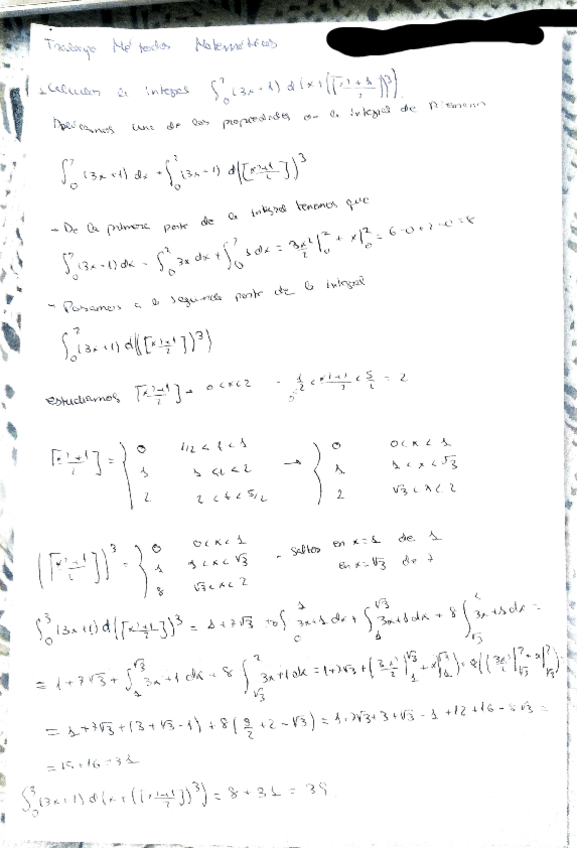 Trabajo Métodos Matemáticos
Calcular la integral ∫₀² (3x+1) d(x+([x²+1/2])³)
Aplicamos una de las propiedades de la integral de Riemann
∫₀² (3x+1) dx + ∫₀² (3x+1) d([x²+1/2])³
- De la primera parte de la integral tenemos que
∫₀² (3x+1) dx = ∫₀² 3x dx + ∫₀² 1 dx = 3x²/2 |₀² + x|₀² = 6-0+2-0=8
- Pasamos a la segunda parte de la integral
∫₀² (3x+1) d(([x²+1/2])³)
estudiamos [x²+1/2] = 0<x<2 - 1/2 < x²+1/2 < 5/2 = 2
[x²+1/2] = { 0 1/2 < t < 1 → { 0 0<x<1
1 1 < t < 2 1 1<x<√3
2 2 < t < 5/2 2 √3<x<2
([x²+1/2])³ = { 0 0<x<1 - saltos en x=1 de 1
1 1<x<√3 en x=√3 de 7
8 √3<x<2
∫₀³ (3x+1) d([x²+1/2])³ = 1+7√3 + 0∫₀¹ 3x+1 dx + ∫₁^√3 3x+1 dx + 8∫_√3² 3x+1 dx =
= 1+7√3 + ∫₁^√3 3x+1 dx + 8∫_√3² 3x+1 dx = 1+7√3 + (3x²/2 |₁^√3 + x|₁^√3) + 8((3x²/2)|_√3² + x|_√3²) =
= 1+7√3+(3+√3-1)+8(9/2+2-√3) = 1+7√3+3+√3-1+12+16-8√3 =
= 15+16=31
∫₀³ (3x+1) d(x+([x²+1/2])³) = 8+31 = 39